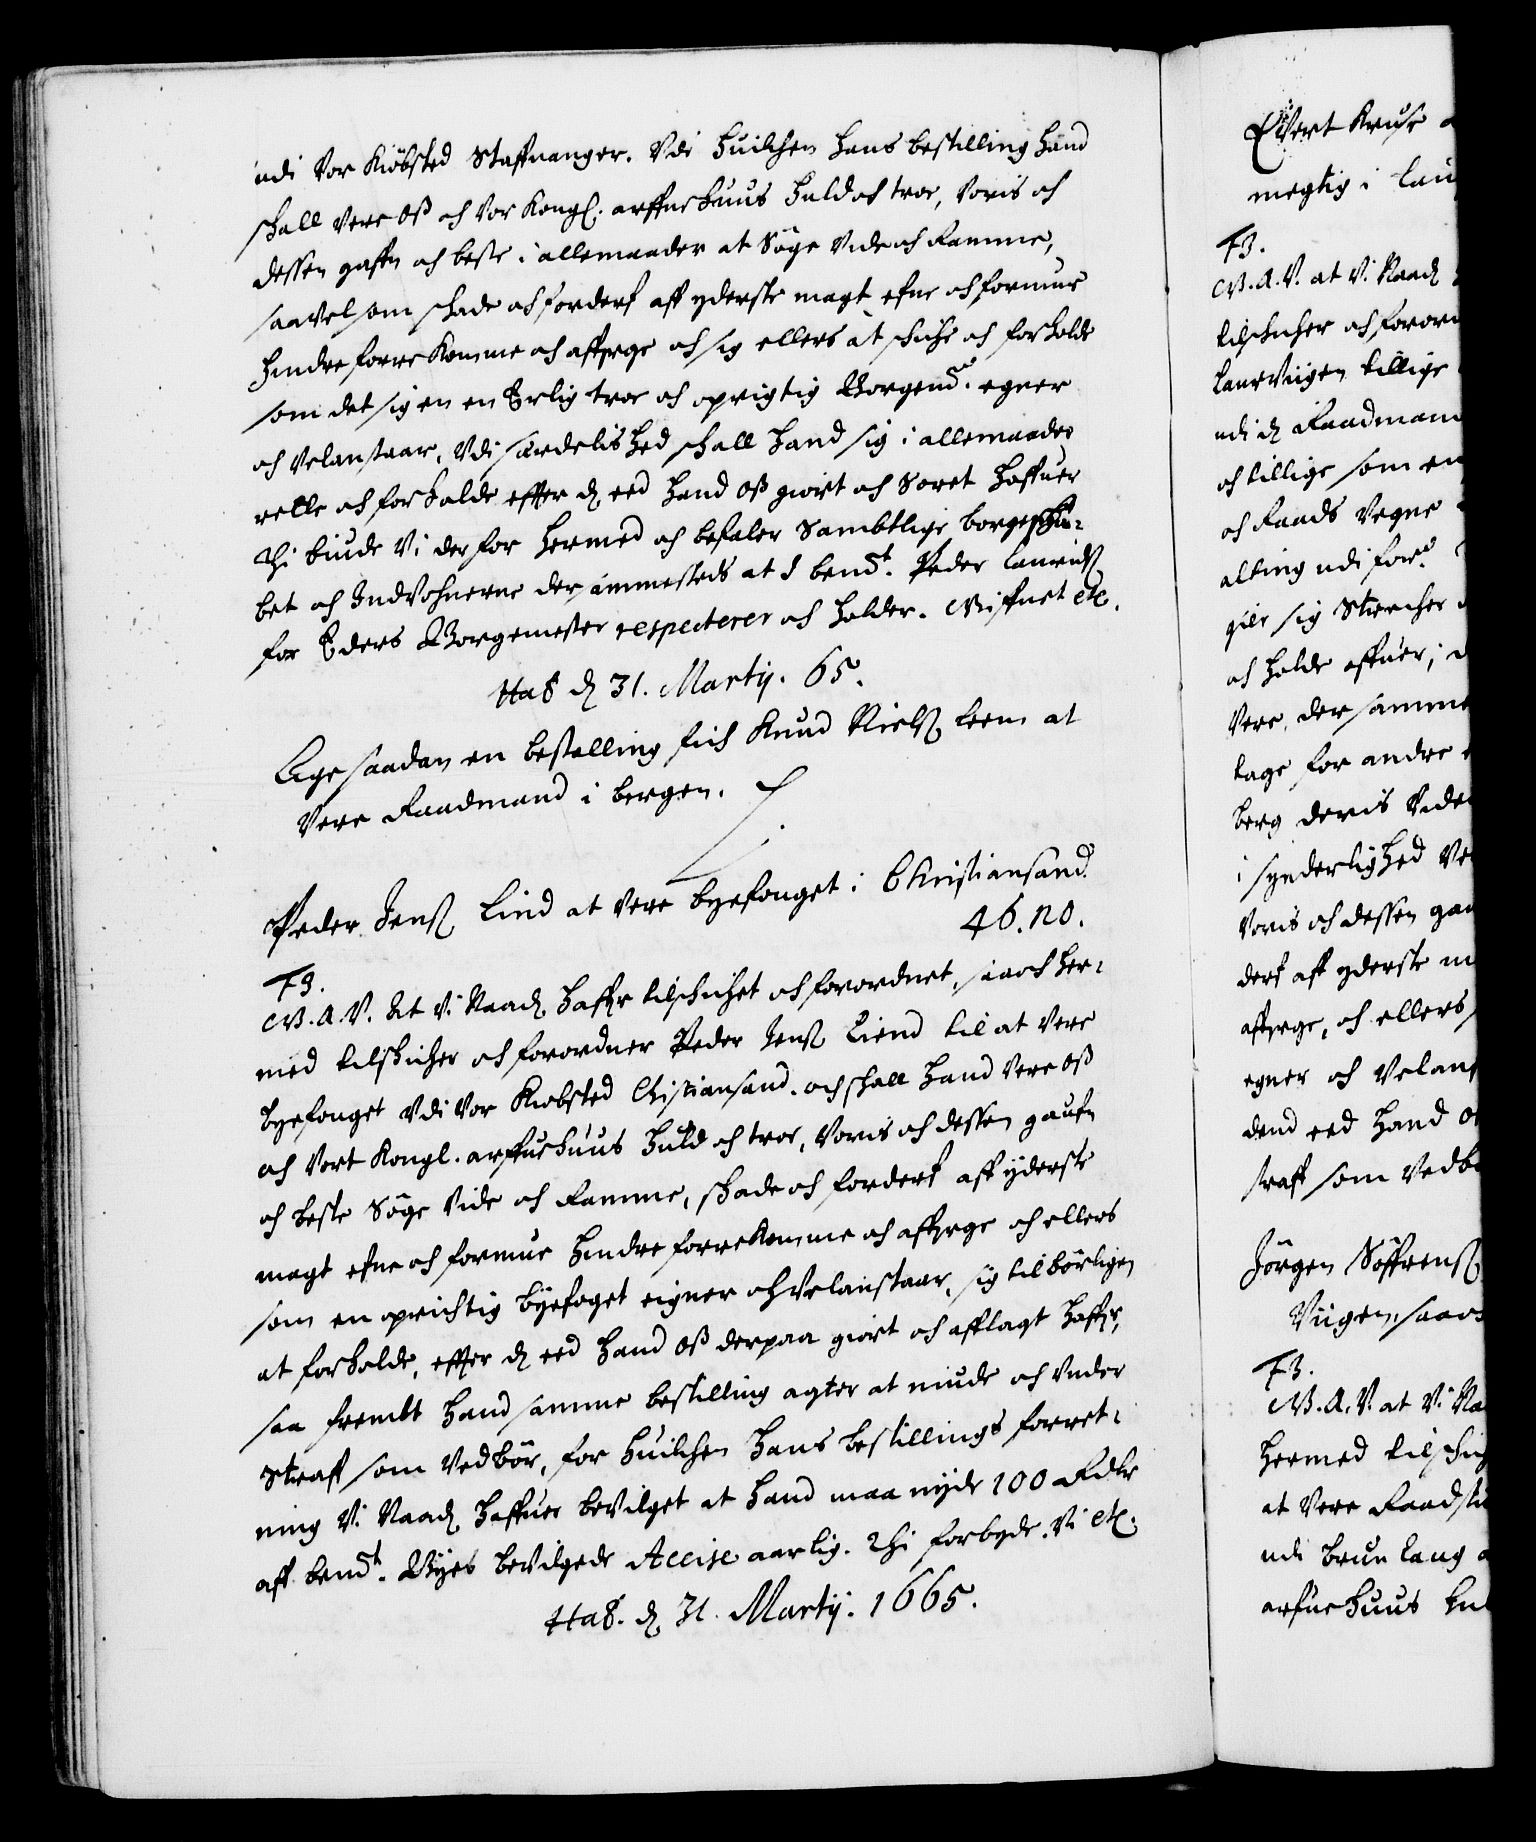 udi Vor Kiöbsted Staffuanger. Vdi huilchen hans bestilling hand
schall vere Oß och Vor Kongl. arffue huus huld och troe, Voris och
dessen gaffn och beste i allemaader at Söge Vide och Ramme,
saavel som schade och forderf aff yderste magt efne och formue
hindre forrekomme och affverge och sig ellers at schiche och forholde
som det sig en en Erlig troe och oprigtig Borgemr. egner
och Velanstaar, Vdi serdelished schall hand sig i allemaader
rette och forholde effter den eed hand Oß giort och Soret haffuer
Thi biude Vi der for hermed och befaler Sambtlige borgerscha-
bet och Indvohnerne der sammesteds at I bemt. Peder lauridsen
for Eders Borgemester respecterer och holder. Giffuet etc.
Haf. den 31. Martij. 65.
Lige saadan en bestelling fich Knud Nielsen leem at
Vere Raadmand i bergen.
Peder Jensen Lind at vere byefouget i Christiansand.
46. no.
F3.
G.A.V. At Vi Naadl haffr tilschichet och forordnet, saa och her-
med tilschicher och forordner Peder Jensen Liend til at Vere
byefouget Vdi Vor Kiobsted Christiansand. och schall hand Vere Oß
och Vort Kongl. arffue huus huld och troe, Voris och dessen gaufn
och beste Söge Vide och Ramme, schade och forderf aff yderste
magt efne och formue hindre forrekomme och affverge och ellers
som en oprichtig byefoget eigner och Velanstaar, sig tilbörligen
at forholde, effter den eed hand Oß derpaa giort och afflagt haffr,
saa frembt hand samme bestilling agter at niude och Vnder
Straff som Vedbör, for huilchen hans bestillings forret-
ning Vi Naadl haffuer bevilget at hand maa nyde 100 Rdlr
aff bemt. Byes bevilgede Accise aarlig. Thi forbyde Vi etc.
Haf. den 31. Martij. 1665.
Evert Kruse
megtig i lau
F3.
G.A.V. at Vi Naadl
tilschicher och foror
laurviigen tillige
udi den Raadmand
och tillige som en
och Raads Vegne
alting udi forr.
giör sig Stercher
och holde offuer,
Vere, der samme
tage for andre
berg deris Vide
i synderlighed Ve
Voris och dessen ga
derf aff yderste m
affverge, och ellers
egner och Velans
dend eed hand O
straff som Vedb
Jörgen Söffrensen
Viigen, saa
F3.
G.A.V. at Vi Na
hermed tilschi
at Vere Raadstu
udi brunlaug
arfue huus hul